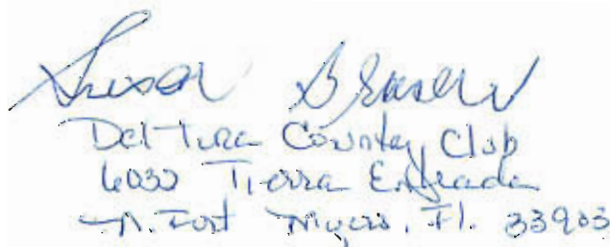 Susan
Del Tura Country Club
Tierra Entrada
N. Fort Myers, Fl. 33903